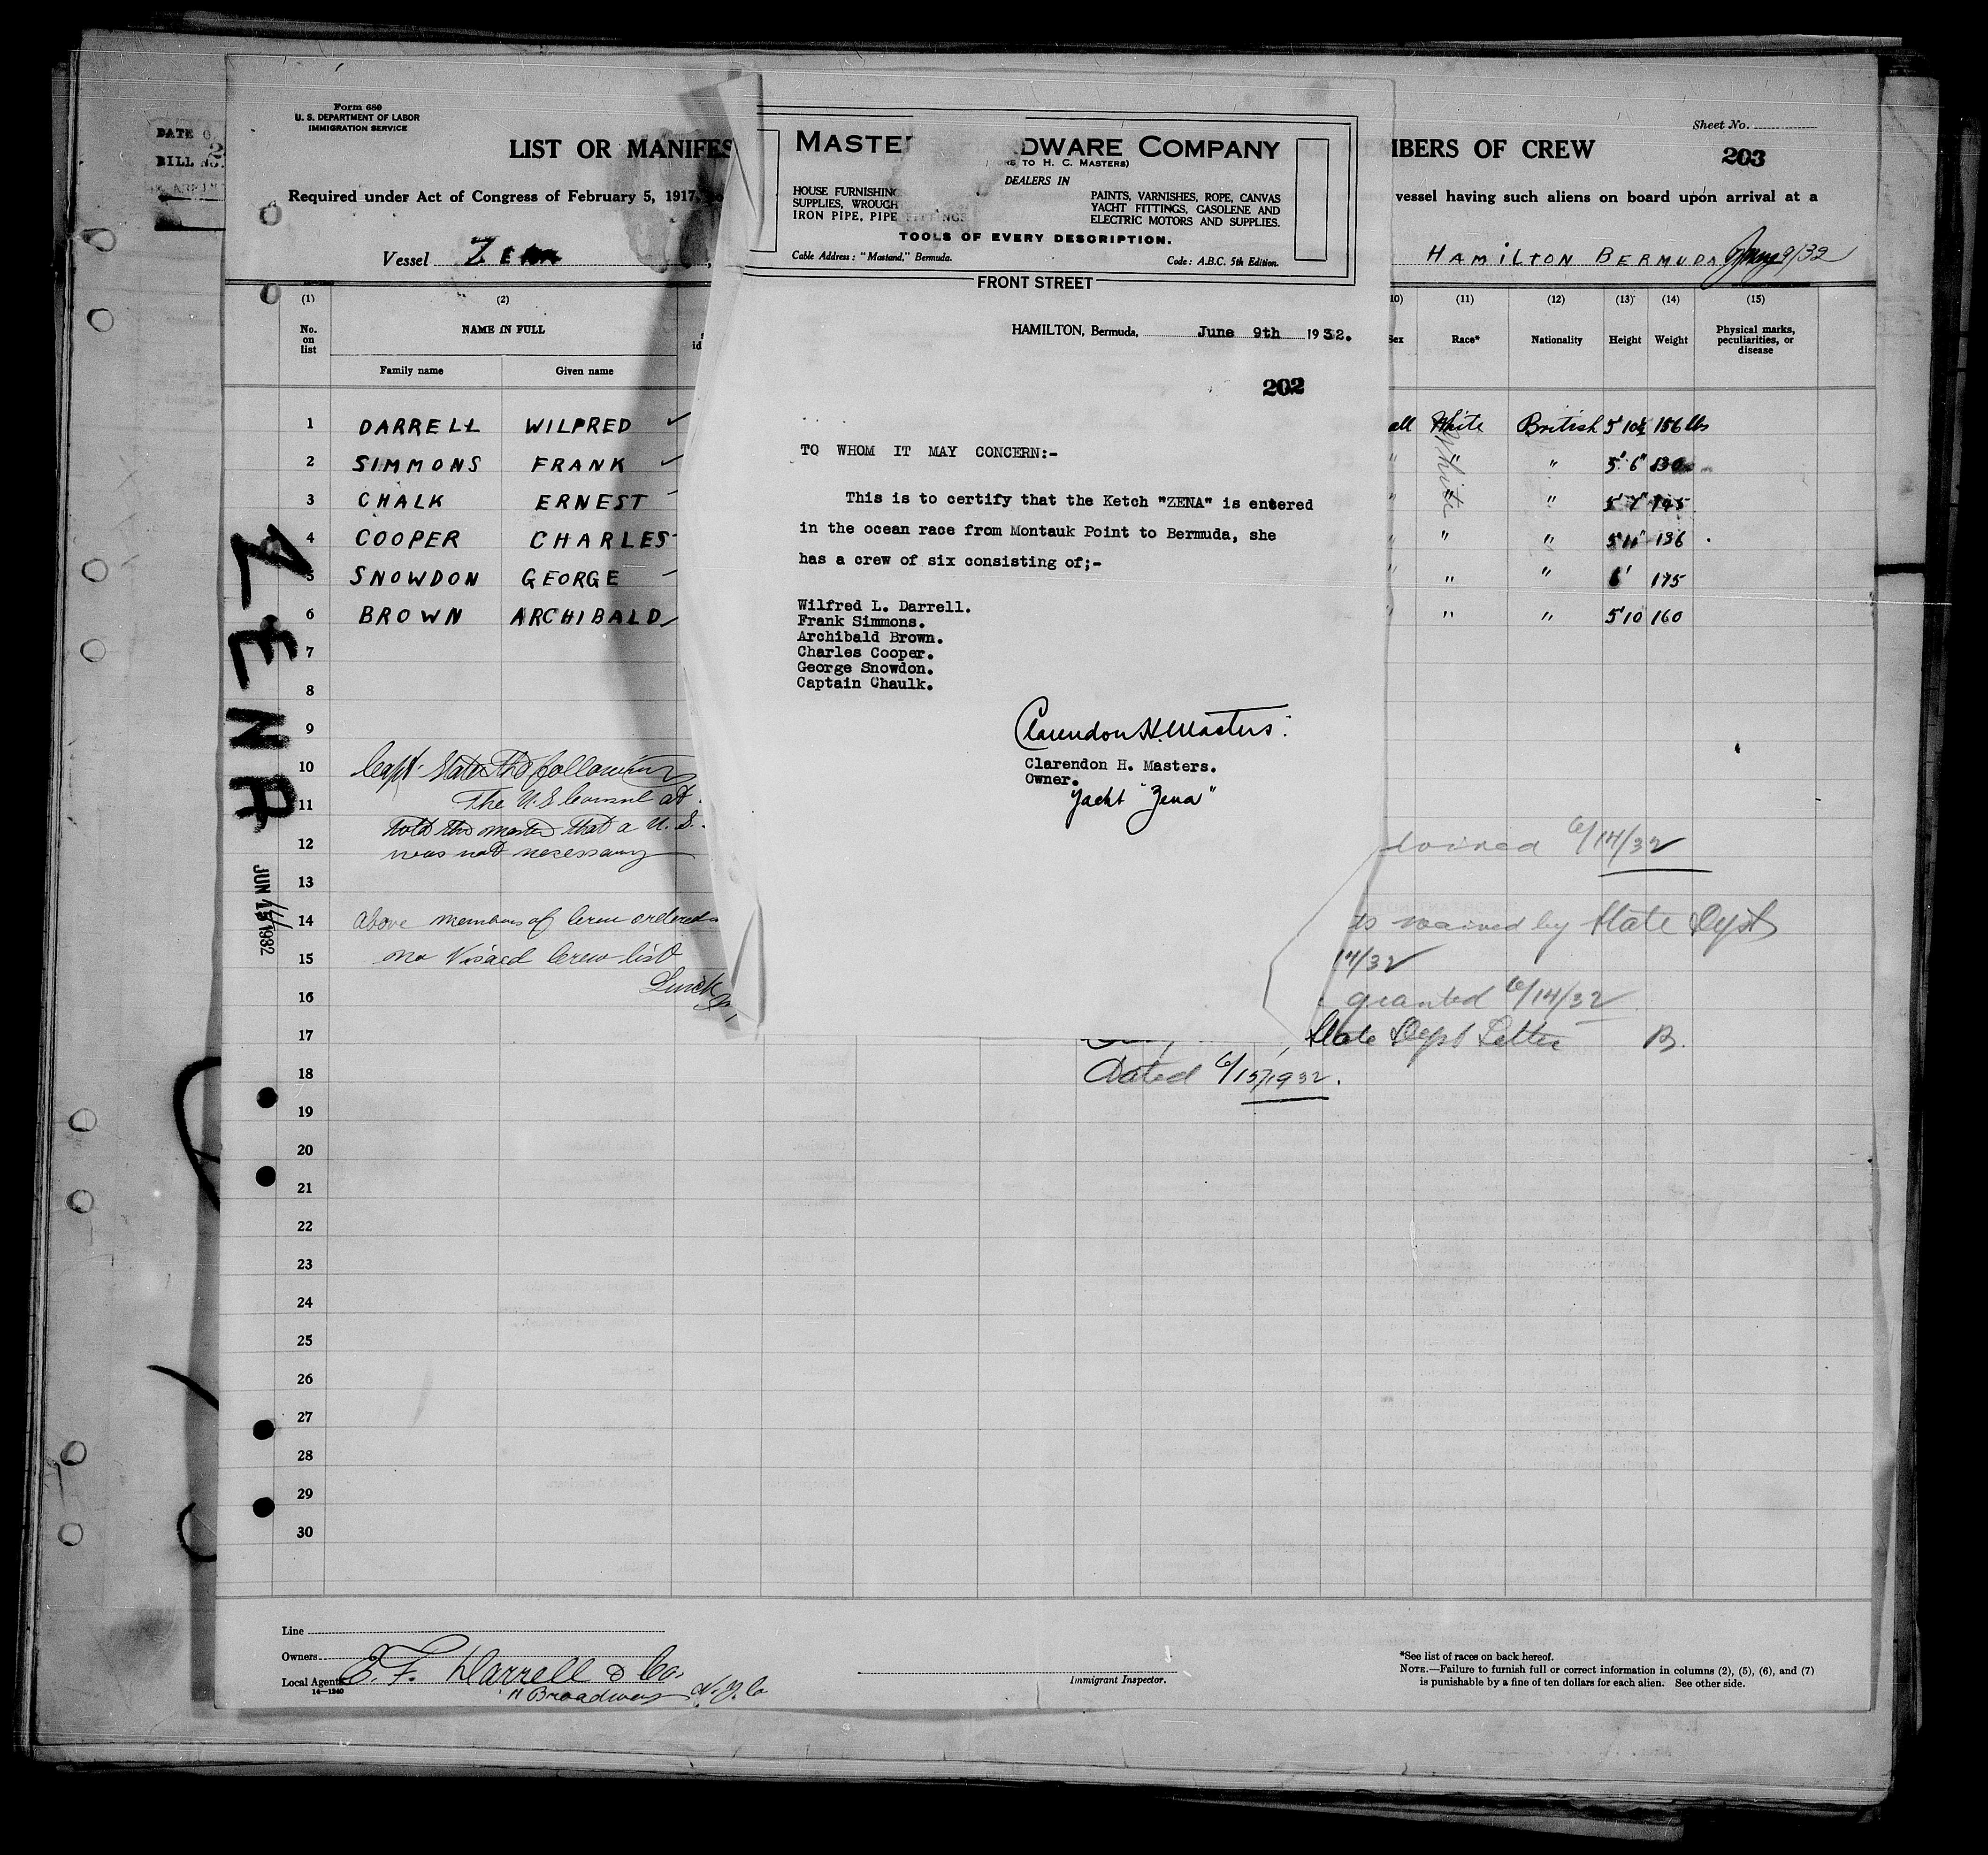 Form 680
U. S. DEPARTMENT OF LABOR
IMMIGRATION SERVICE
DATE
BILL NO.
LIST OR MANIFES
Required under Act of Congress of February 5, 1917,
Vessel ZENA
MBERS OF CREW
Sheet No.
203
vessel having such aliens on board upon arrival at a
HAMILTON BERMUDA 9/32
(1) (2)
No. on list
NAME IN FULL
Family name Given name
(10) (11) (12) (13) (14) (15)
Sex Race* Nationality Height Weight Physical marks, peculiarities, or disease
1 DARRELL WILFRED all White British 5'10½ 156 lbs
2 SIMMONS FRANK " " " 5' 6"
3 CHALK ERNEST " " " 5' 7" 145
4 COOPER CHARLES " " " 5'11" 136
5 SNOWDON GEORGE " " " 6' 175
6 BROWN ARCHIBALD " " " 5'10 160
White
7
8
9
10
11
12
13
14
15
16
17
18
19
20
21
22
23
24
25
26
27
28
29
30
ZENA
JUN 15 1932
14
Capt. States the following
The U.S. Consul at
told the master that a U.S.
was not necessary
above members of Crew ordered
no Visaed Crew list
6/14/32
is waived by State Dept
14/32
granted 6/14/32
State Dept Letter B.
Dated 6/15/1932.
MASTE DWARE COMPANY
TO H. C. MASTERS)
DEALERS IN
HOUSE FURNISHING
SUPPLIES, WROUGH
IRON PIPE, PIPE FITTINGS
PAINTS, VARNISHES, ROPE, CANVAS
YACHT FITTINGS, GASOLENE AND
ELECTRIC MOTORS AND SUPPLIES.
TOOLS OF EVERY DESCRIPTION.
Cable Address: "Mastand," Bermuda. Code: A.B.C. 5th Edition.
FRONT STREET
HAMILTON, Bermuda, June 9th 1932.
202
TO WHOM IT MAY CONCERN:-
This is to certify that the Ketch "ZENA" is entered
in the ocean race from Montauk Point to Bermuda, she
has a crew of six consisting of;-
Wilfred L. Darrell.
Frank Simmons.
Archibald Brown.
Charles Cooper.
George Snowdon.
Captain Chaulk.
Clarendon H. Masters.
Clarendon H. Masters.
Owner.
Yacht "Zena"
Line
Owners
Local Agents E. F. Darrell & Co.
14—1240
11 Broadway N.Y.C
Immigrant Inspector.
*See list of races on back hereof.
NOTE.—Failure to furnish full or correct information in columns (2), (5), (6), and (7)
is punishable by a fine of ten dollars for each alien. See other side.